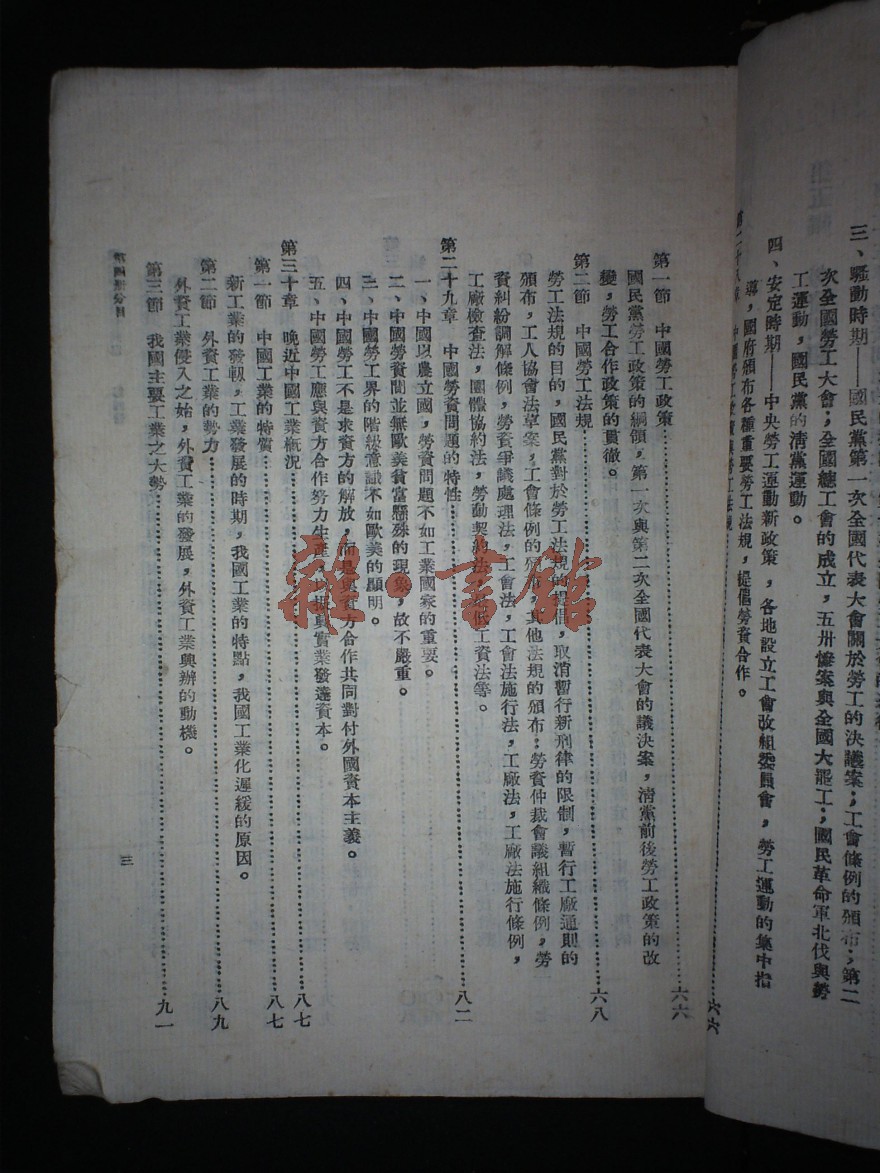 三、騷動時期——國民黨第一次全國代表大會關於勞工的決議案;工會條例的頒布;第二
次全國勞工大會;全國總工會的成立,五卅慘案與全國大罷工;國民革命軍北伐與勞
工運動,國民黨的清黨運動。
四、安定時期——中央勞工運動新政策,各地設立工會改組委員會,勞工運動的集中指
導,國府頒布各種重要勞工法規,提倡勞資合作。
六六
第一節 中國勞工政策 六六
國民黨勞工政策的綱領,第一次與第二次全國代表大會的議決案,清黨前後勞工政策的改
變,勞工合作政策的貫徹。
第二節 中國勞工法規 六八
勞工法規的目的,國民黨對於勞工法規的提倡,取消暫行新刑律的限制,暫行工廠通則的
頒布,工人協會法草案,工會條例的頒布,其他法規的頒布:勞資仲裁會議組織條例,勞
資糾紛調解條例,勞資爭議處理法,工會法,工會法施行法,工廠法,工廠法施行條例,
工廠檢查法,團體協約法,勞動契約法,最低工資法等。
第二十九章 中國勞資問題的特性 八二
一、中國以農立國,勞資問題不如工業國家的重要。
二、中國勞資間並無歐美貧富懸殊的現象,故不嚴重。
三、中國勞工界的階級意識不如歐美的顯明。
四、中國勞工不是求資方的解放,而是與資方合作共同對付外國資本主義。
五、中國勞工應與資方合作努力生產,以振興實業發達資本。
第三十章 晚近中國工業概況 八七
第一節 中國工業的特質 八七
新工業的發軔,工業發展的時期,我國工業的特點,我國工業化遲緩的原因。
第二節 外資工業的勢力 八九
外資工業侵入之始,外資工業的發展,外資工業興辦的動機。
第三節 我國主要工業之大勢 九一
三
雜·書館